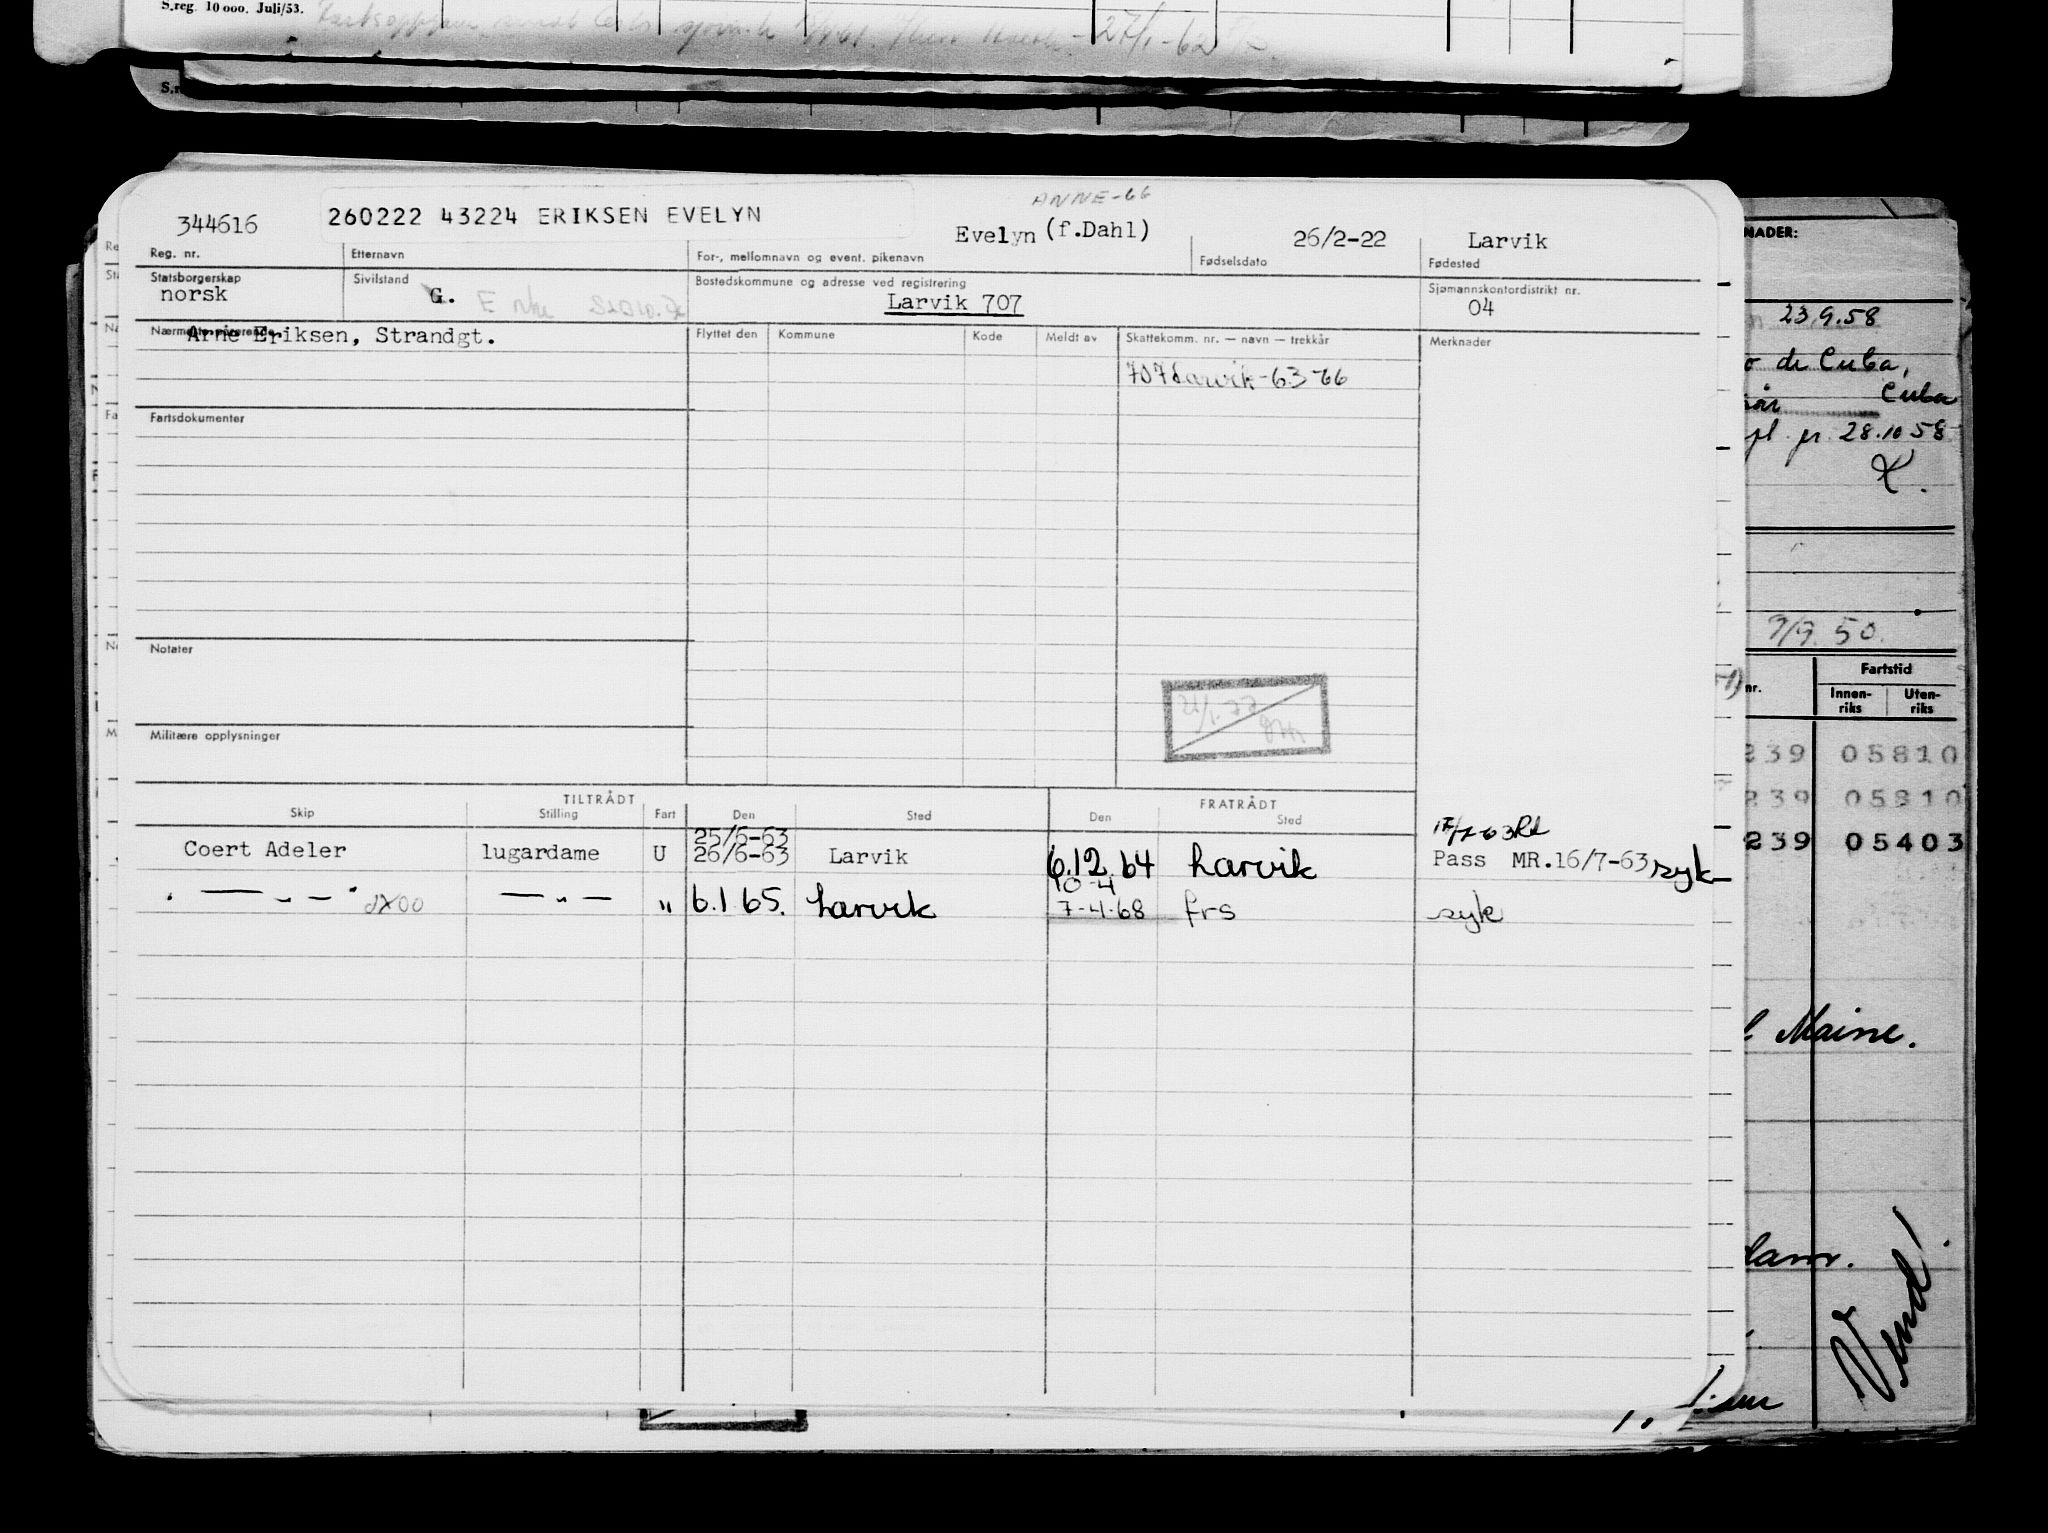 S.reg. 10 000. Juli/53.
27/1-62
ANNE-66
344616 260222 43224 ERIKSEN EVELYN Evelyn (f.Dahl) 26/2-22 Larvik
Reg. nr. Etternavn For-, mellomnavn og event. pikenavn Fødselsdato Fødested
Statsborgerskap Sivilstand Bostedskommune og adresse ved registrering Sjømannskontordistrikt nr.
norsk G. Enke Larvik 707 04
Nærmeste pårørende Flyttet den Kommune Kode Meldt av Skattekomm. nr. — navn — trekkår Merknader
Arne Eriksen, Strandgt.
707 Larvik-63-66
Fartsdokumenter
Notater
Militære opplysninger
TILTRÅDT FRATRÅDT
Skip Stilling Fart Den Sted Den Sted
25/6-63 17/7-63
Coert Adeler lugardame U 26/6-63 Larvik 6.12.64 Larvik Pass MR.16/7-63 syk
10-4
— " — — " — " 6.1 65. Larvik 7-4-68 frs syk
NADER:
23.9.58
de Cuba,
Cuba
pr. 28.10 58
9/9. 50.
Fartstid
nr. Innen-riks Uten-riks
239 05810
239 05810
239 05403
Maine.
dam.
Vend!